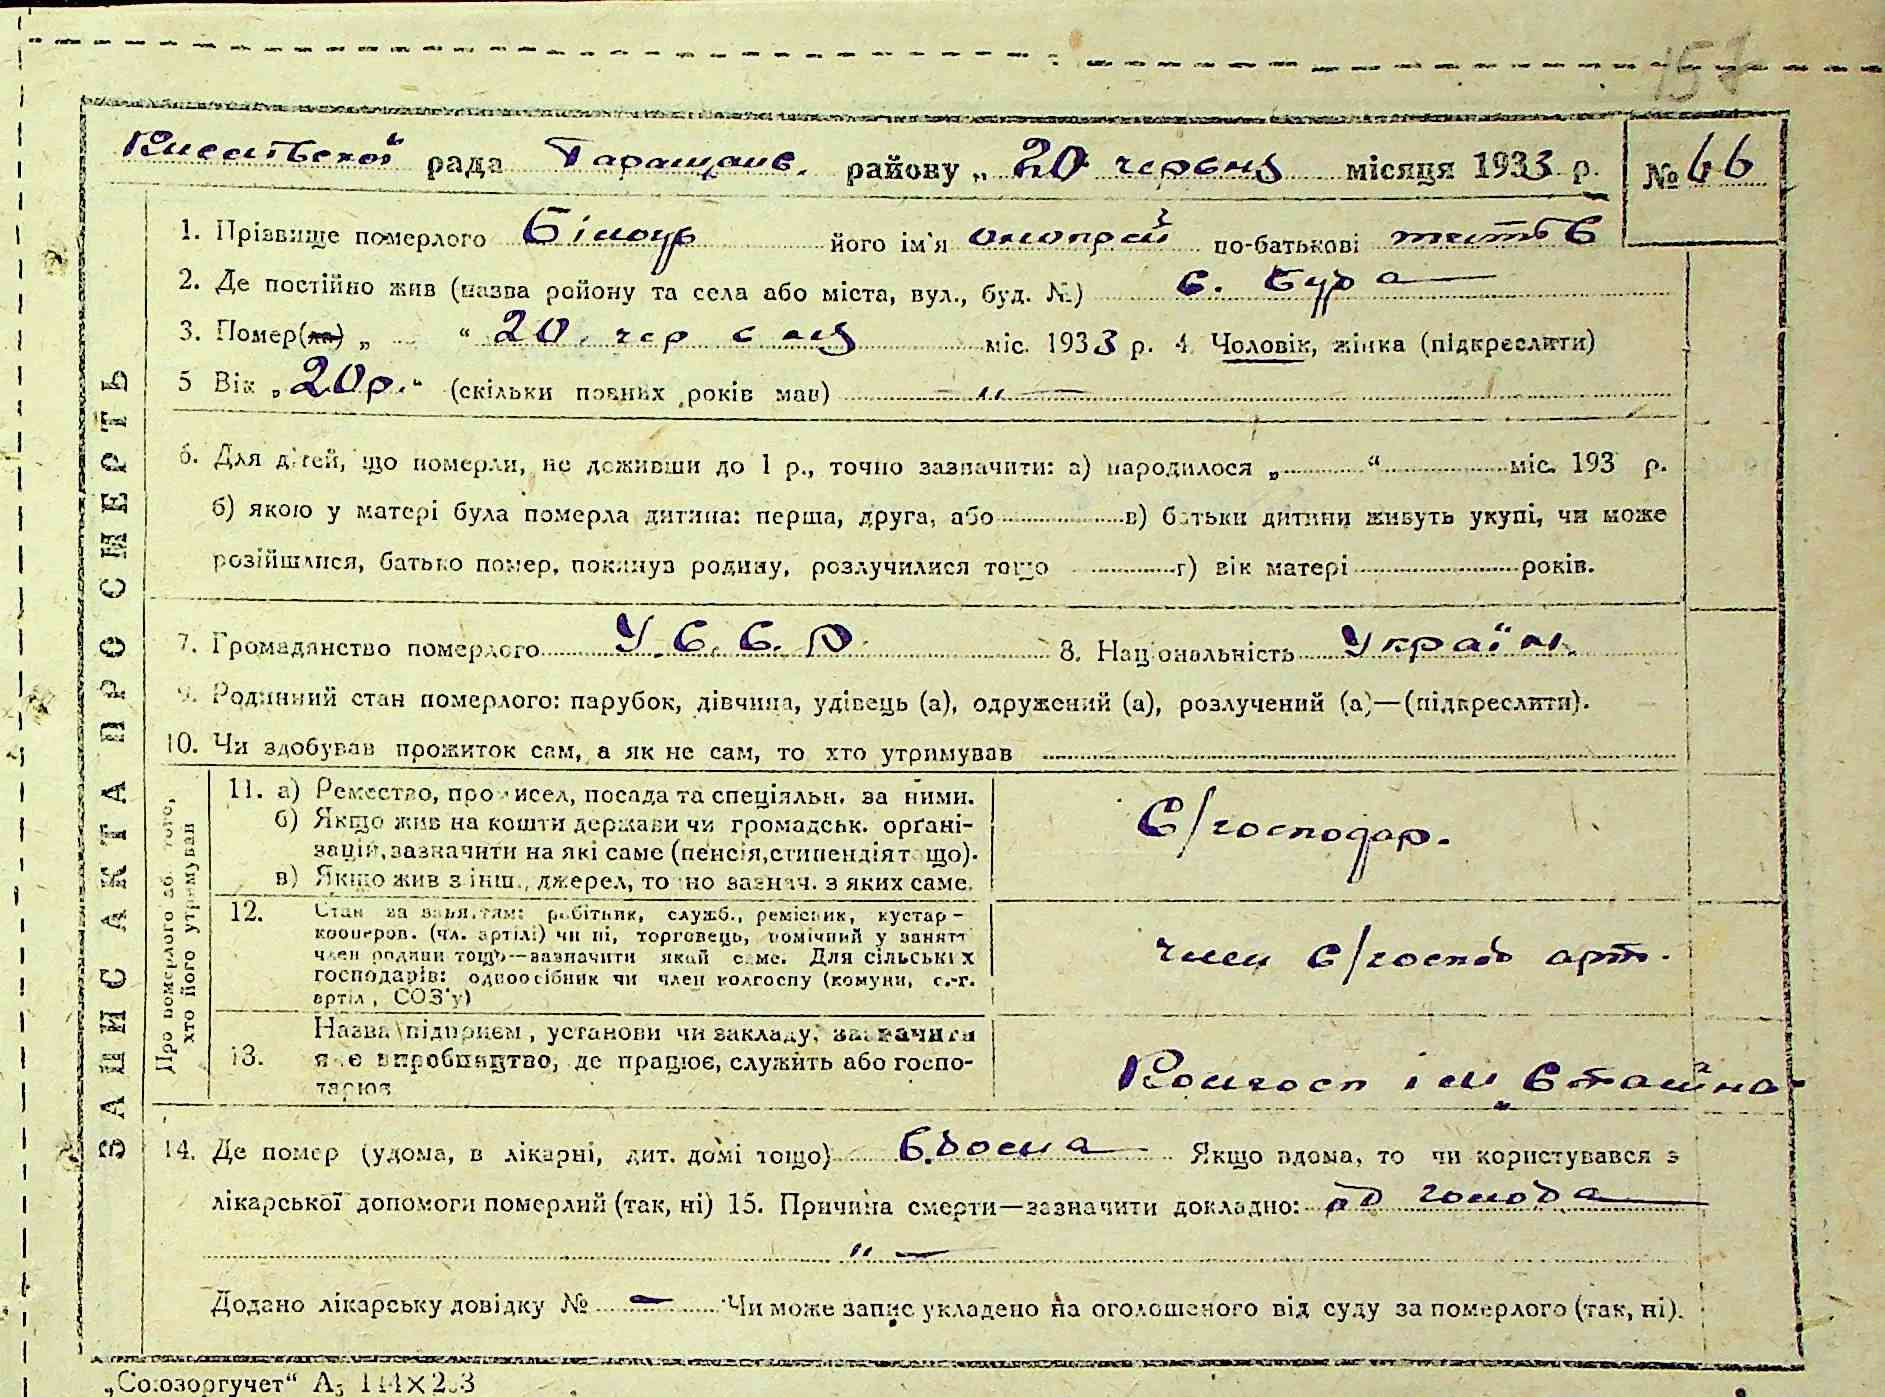 157
Киселівської рада Таращанс. району „ 20 червня місяця 1933 р. № 66
1. Прізвище померлого Білоус його ім'я по-батькові
2. Де постійно жив (назва району та села або міста, вул., буд. №) с. Бурда
3. Помер(ла) „ “ 20. червня міс. 1933 р. 4. Чоловік, жінка (підкреслити)
5 Вік „ 20 р. “ (скільки повних років мав) — „ —
6. Для дітей, що померли, не доживши до 1 р., точно зазначити: а) народилося „ “ міс. 193 р.
б) якою у матері була померла дитина: перша, друга, або в) батьки дитини живуть укупі, чи може
розійшлися, батько помер, покинув родину, розлучилися тощо г) вік матері років.
7. Громадянство померлого У. С. С. Р. 8. Національність Україн.
9. Родинний стан померлого: парубок, дівчина, удівець (а), одружений (а), розлучений (а)—(підкреслити).
10. Чи здобував прожиток сам, а як не сам, то хто утримував
ЗАПИС АКТА ПРО СМЕРТЬ
Про померлого або того, хто його утримував
11. а) Ремество, промисел, посада та спеціяльн. за ними.
б) Якщо жив на кошти держави чи громадськ. орґані-
зацій, зазначити на які саме (пенсія, стипендія тощо).
в) Якщо жив з інш., джерел, точно зазнач. з яких саме.
С/господар.
12. Стан за заняттям: робітник, служб., ремісник, кустар-
кооперов. (чл. артілі) чи ні, торговець, помічний у занятті
член родини тощо—зазначити який саме. Для сільських
господарів: одноосібник чи член колгоспу (комуни, с.-г.
артіл, СОЗ'у)
член С/господ арт.
13. Назва підприєм, установи чи закладу, зазначити
яке виробництво, де працює, служить або госпо-
дарює
Колгосп ім. Сталіна
14. Де помер (удома, в лікарні, дит. домі тощо) вдома Якщо вдома, то чи користувався з
лікарської допомоги померлий (так, ні) 15. Причина смерти—зазначити докладно: од голода
„ —
Додано лікарську довідку № — Чи може запис укладено на оголошеного від суду за померлого (так, ні).
„Союзоргучет“ А5